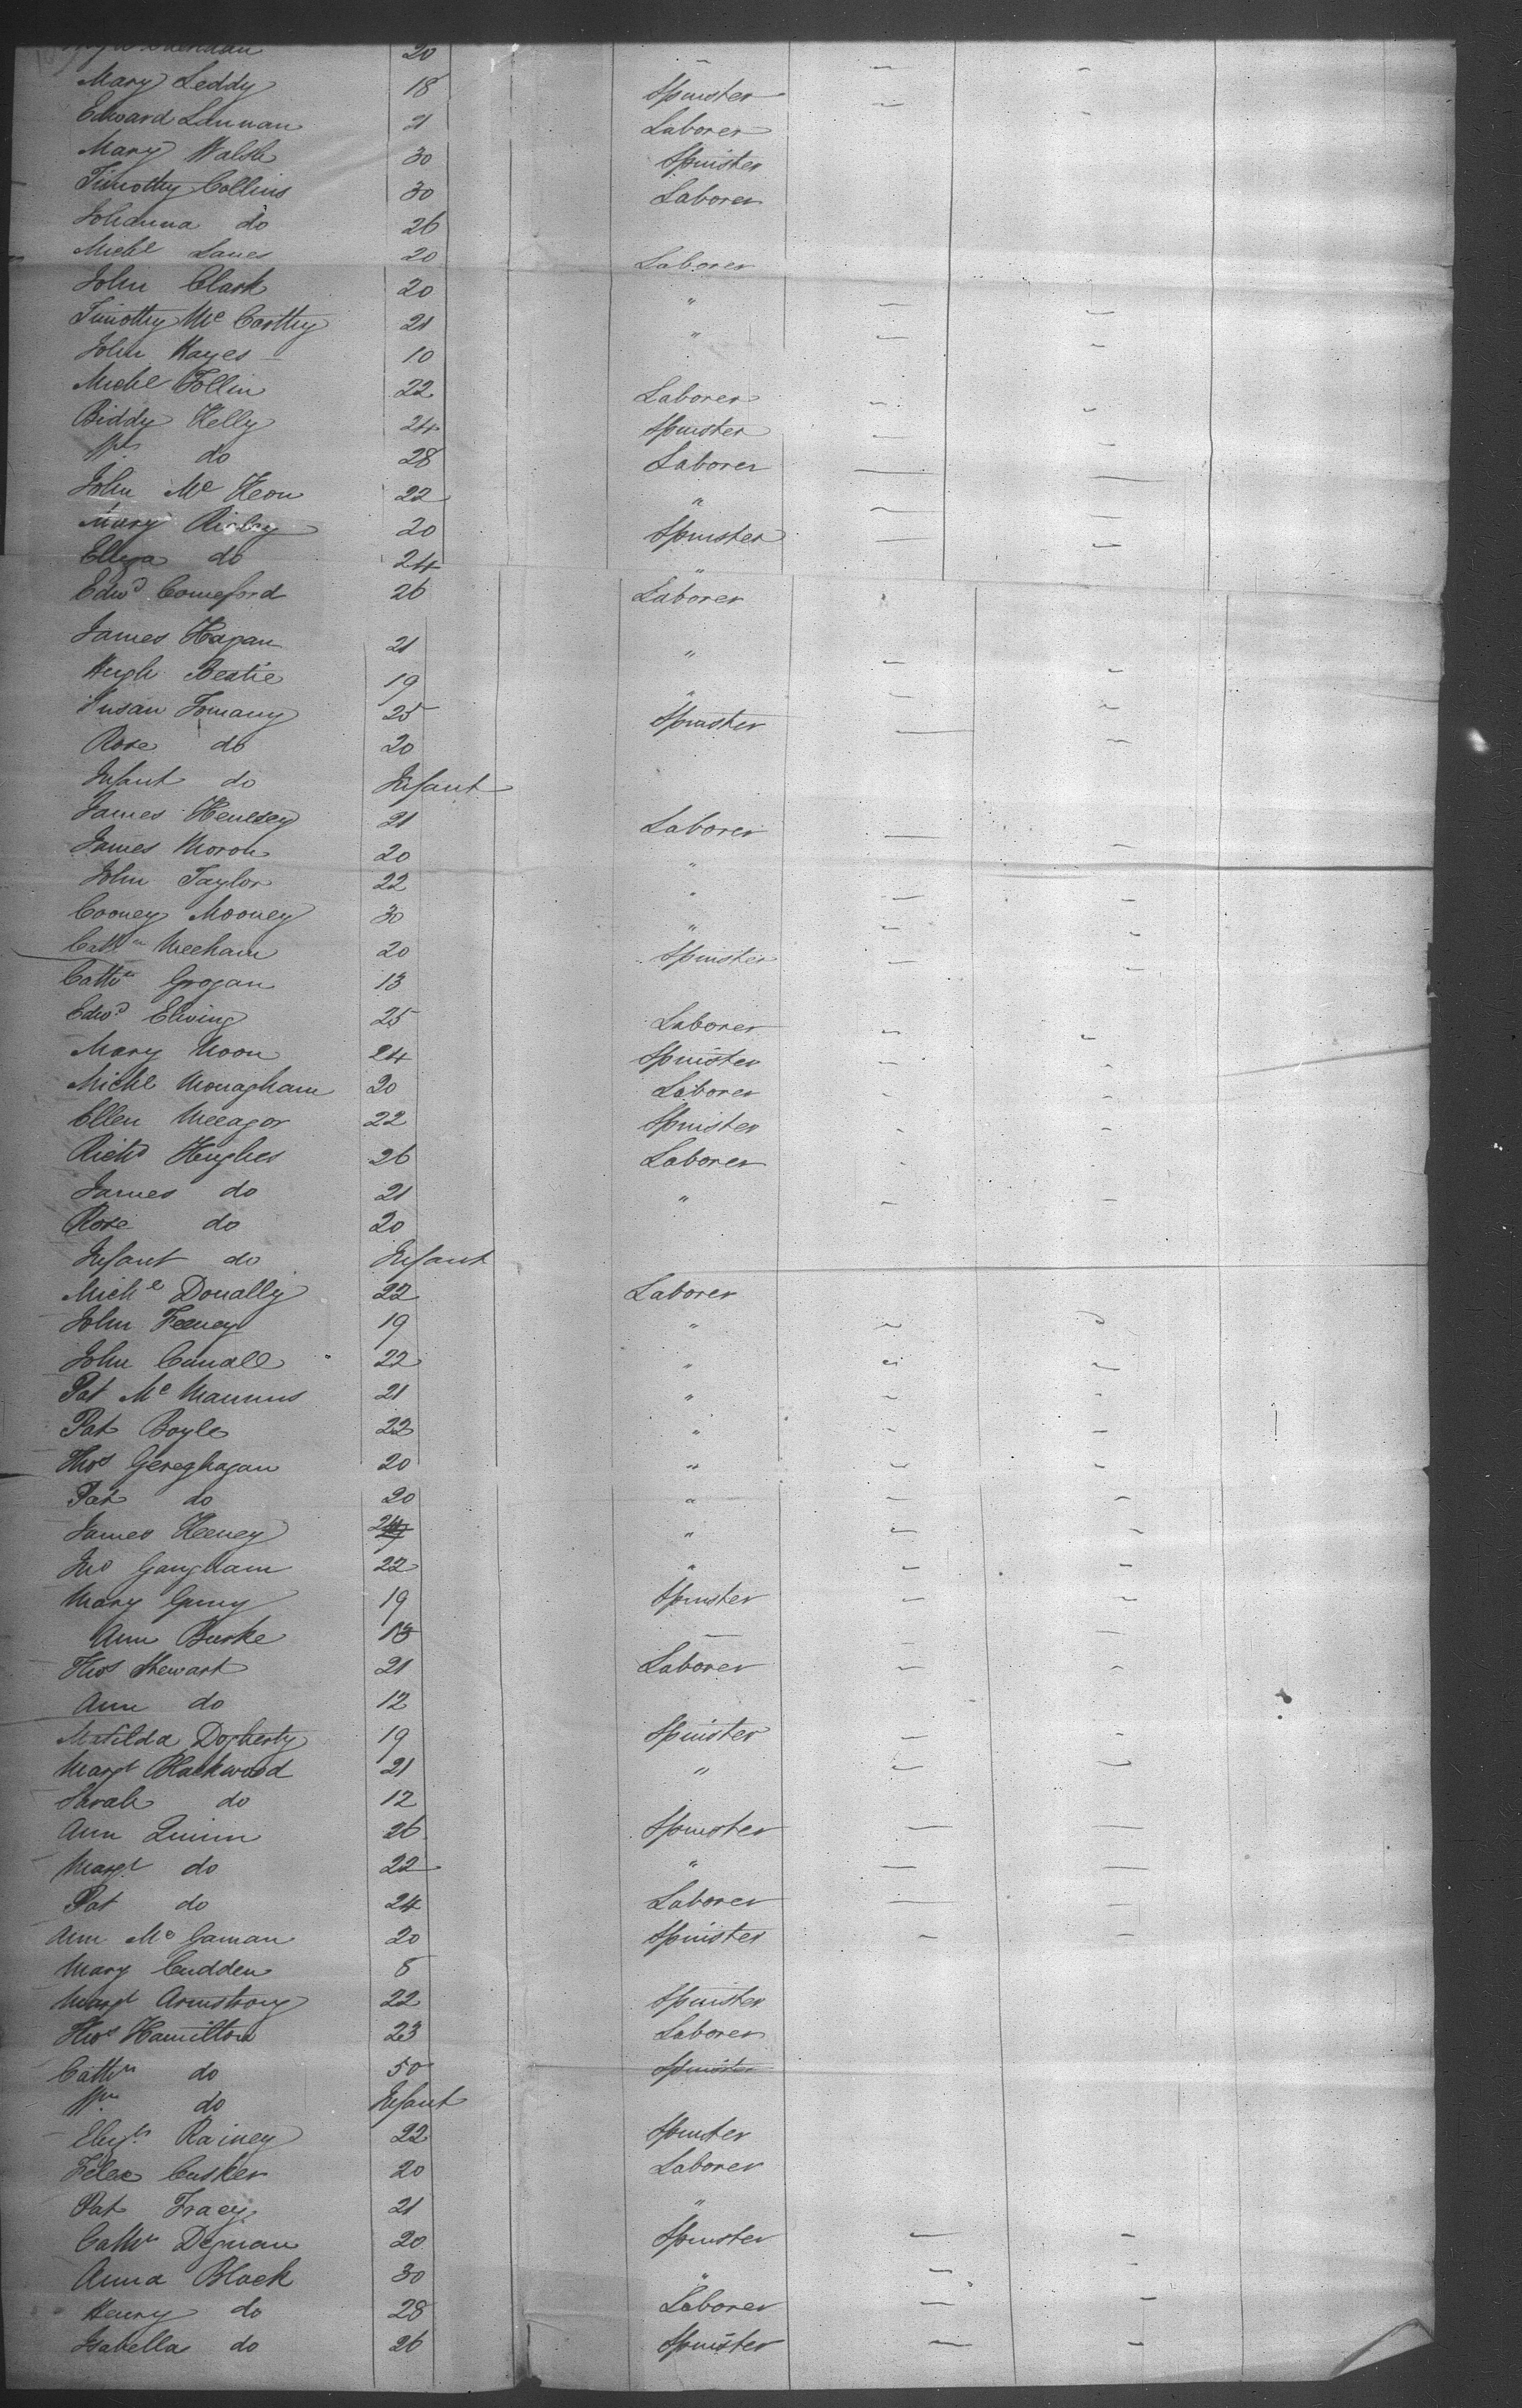 20 –
Mary Leddy 18 Spinster
Edward Lannan 21 Laborer
Mary Walsh 30 Spinster
Timothy Collins 30 Laborer
Johanna do 26
Michl Lanes 20 Laborer
John Clark 20 "
Timothy Mc Carthy 21 "
John Hayes 10
Michl Follin 22 Laborer
Biddy Kelly 24 Spinster
Wm do 28 Laborer
John Mc Keon 22 "
Mary Rigby 20 Spinster
Eliza do 24 "
Edwd Comeford 26 Laborer
James Hagan 21 "
Hugh Beatie 19 "
Susan Tomany 25 Spinster
Rose do 20
Infant do Infant
James Henesey 21 Laborer
James Moron 20 "
John Taylor 22 "
Cooney Mooney 30 "
Cathn Meehan 20 Spinster
Cathn Grogan 13
Edwd Ewing 25 Laborer
Mary Moon 24 Spinster
Michl Monagham 20 Laborer
Ellen Meeagor 22 Spinster
Richd Hughes 26 Laborer
James do 21 "
Rose do 20
Infant do Infant
Michl Donally 22 Laborer
John Feeney 19 "
John Cunall 22 "
Pat Mc Mannus 21 "
Pat Boyle 22 "
Thos Gereghagan 20 "
Pat do 20 "
James Keeney "
Jno Gangham 22 "
Mary Gumy 19 Spinster
Ann Burke 13 –
Thos Stewart 21 Laborer
Ann do 12
Matilda Dogherty 19 Spinster
Margt Blackwood 21 "
Sarah do 12
Ann Quinn 26 Spinster
Margt do 22 "
Pat do 24 Laborer
Ann Mc Gaman 20 Spinster
Mary Cudden 8
Margt Armstrong 22 Spinster
Thos Hamilton 23 Laborer
Cathn do 50 Spinster
Wm do Infant
Elizth Rainey 22 Spinster
Felex Cusker 20 Laborer
Pat Tracy 21 "
Cathn Degnan 20 Spinster
Anna Black 30 "
Henry do 28 Laborer
Isabella do 26 Spinster